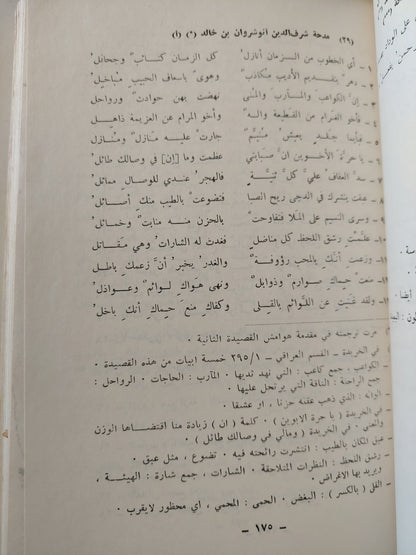 (٣٩) مدحة شرف الدين انوشروان بن خالد (*) (أ)
١ - أي الخطوب من الزمان أنازل كل الزمان كتائب وجحافل
٢ - دهر بتقديم الأديب مكاذب وهوى باسعاف الحبيب مباخل
٣ - إن الكواعب والمآرب والمنى نهضت بهن حوادث ورواحل
٤ - فأخو الغرام من القطيعة واله وأخو المرام عن العزيمة ذاهل
٥ - منازل ومنازل
٦ - يا حرة الأخوين ان صبابتي عظمت وما [إن] في وصالك طائل
٧ - سد العفاف علي كل ثنية فالهجر عندي للوصال مماثل
٨ - عبقت بنشرك في الدجى ريح الصبا فتضوعت بالطيب منك أصائل
٩ - وسرى النسيم على الملا فتفاوحت بالحزن منه منابت وخمائل
١٠ - علمت رشق اللحظ كل مناضل فغدت له الشارات وهي مقاتل
١١ - وزعمت أنك بالمحب رؤوفة والغدر يخبر أن زعمك باطل
١٢ - منعت حماك صوارم وذوابل ونهى هواك لوائم وعواذل
١٣ - ولقد غنيت عن اللوائم بالقلى وكفاك منع حماك أنك باخل
(*) مرت ترجمته في مقدمة هوامش القصيدة الثانية ٠
في الخريدة - القسم العراقي - ٢٩٥/١ خمسة ابيات من هذه القصيدة ٠
الكواعب ، جمع كاعب : التي نهد ثديها ٠ المآرب : الحاجات ٠ الرواحل :
جمع الراحلة : الناقة التي يرتحل عليها ٠
الواله : الذي ذهب عقله حزنا ، او عشقا ٠
في الخريدة ( يا حرة الابوين ) ٠ كلمة ( ان ) زيادة منا اقتضاها الوزن
والمعنى ٠ في الخريدة ( ومالي في وصالك طائل ) ٠
عبق المكان بالطيب : انتشرت رائحته فيه ٠ تضوع ، مثل عبق ٠
رشق اللحظ : النظرات المتلاحقة ٠ الشارات ، جمع شارة : الهيئة ،
ويريد بها الاغراض ٠
القلى ( بالكسر ) : البغض ٠ الحمى : المحمي ، اي محظور لايقرب ٠
- ١٧٥ -